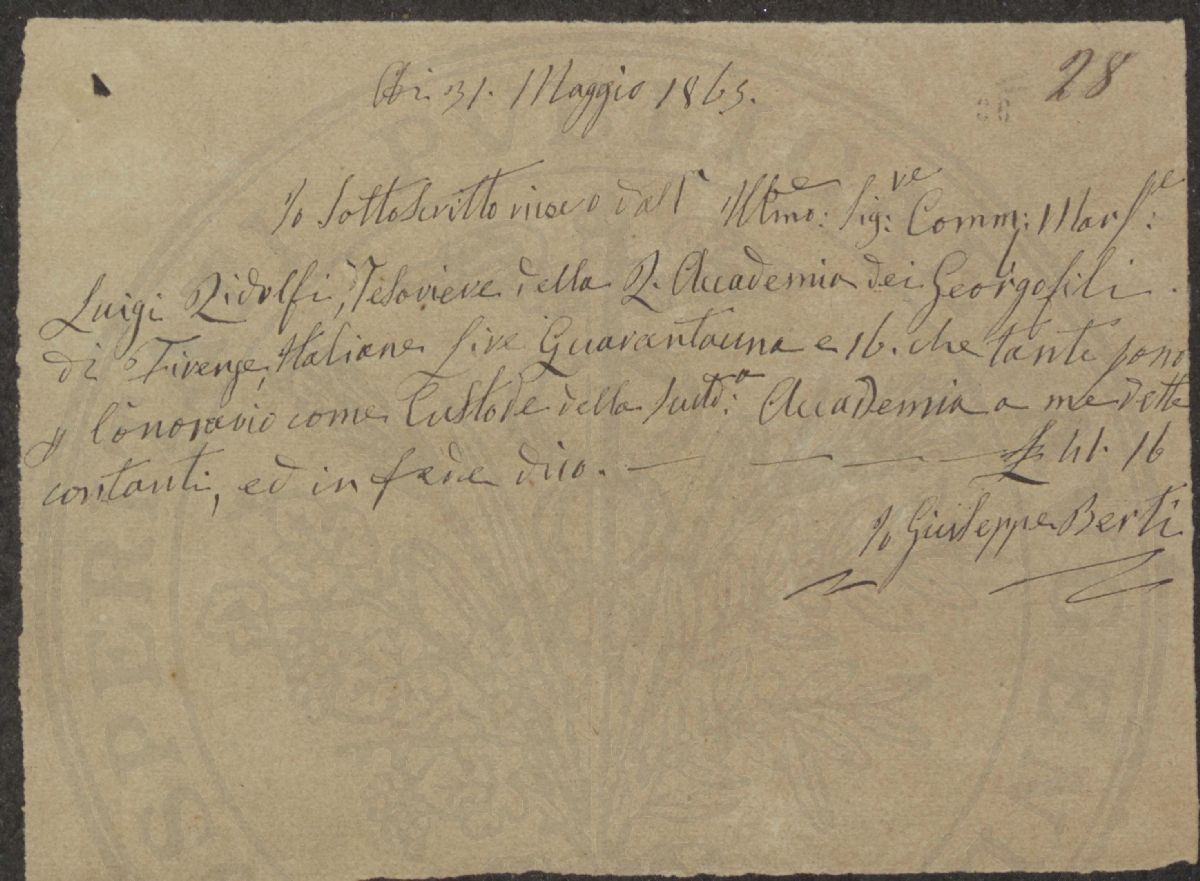 28
Adi 31. Maggio 1865.
Io Sottoscritto ricevo dall' Illmo: Sig:re Comm: Mars:e
Luigi Ridolfi, Tesoriere della R. Accademia dei Georgofili.
di Firenze, Italiane Lire Quarantauna e 16. che tante sono
p l'onorario come Custode della Sudd:a Accademia a me dette
contanti, ed in fede dico. — — — £ 41. 16
Io Giuseppe Berti
PVBLIC
SPER